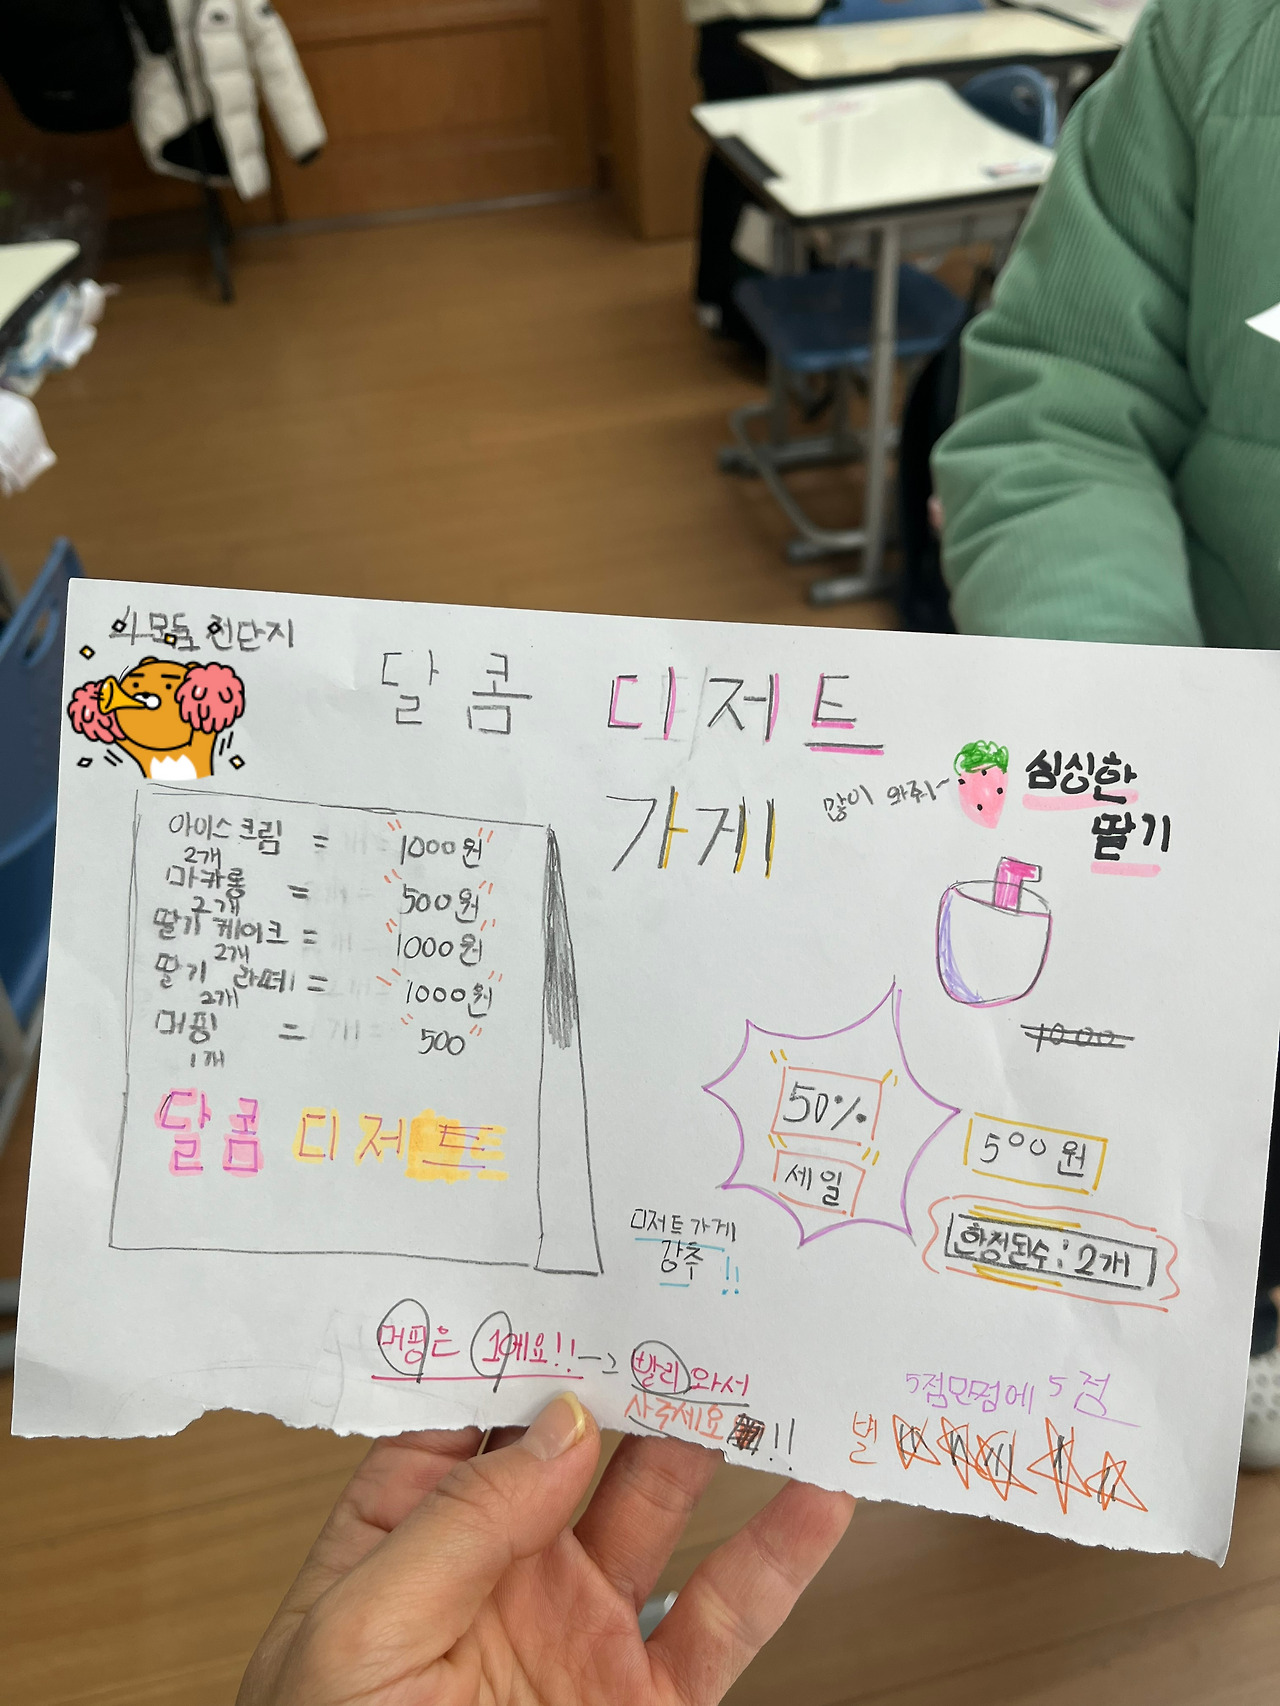 모둠 전단지
달콤 디저트
가게
많이 와줘~
싱싱한
딸기
아이스크림 = 1000원
2개
마카롱 = 500원
2개
딸기 케이크 = 1000원
2개
딸기 라떼 = 1000원
2개
머핑 = 500
1개
달콤 디저트
1000
50%
세일
500원
한정된수 : 2개
디저트 가게
강추!!
머핑은 1개요!! → 빨리 와서
사주세요!!
5점만점에 5점
별